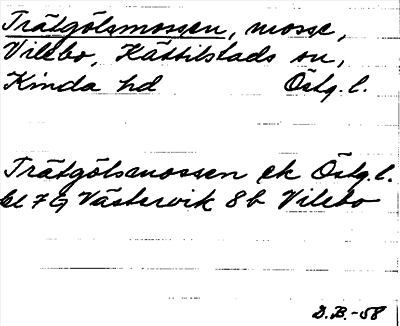 Trätgölsmossen, mosse,
Vilebo, Kättilstads sn,
Kinda hd Östg. l.
Trätgölsmossen ek Östg. l.
bl 7G Västervik 8b Vilebo
D.B.-58